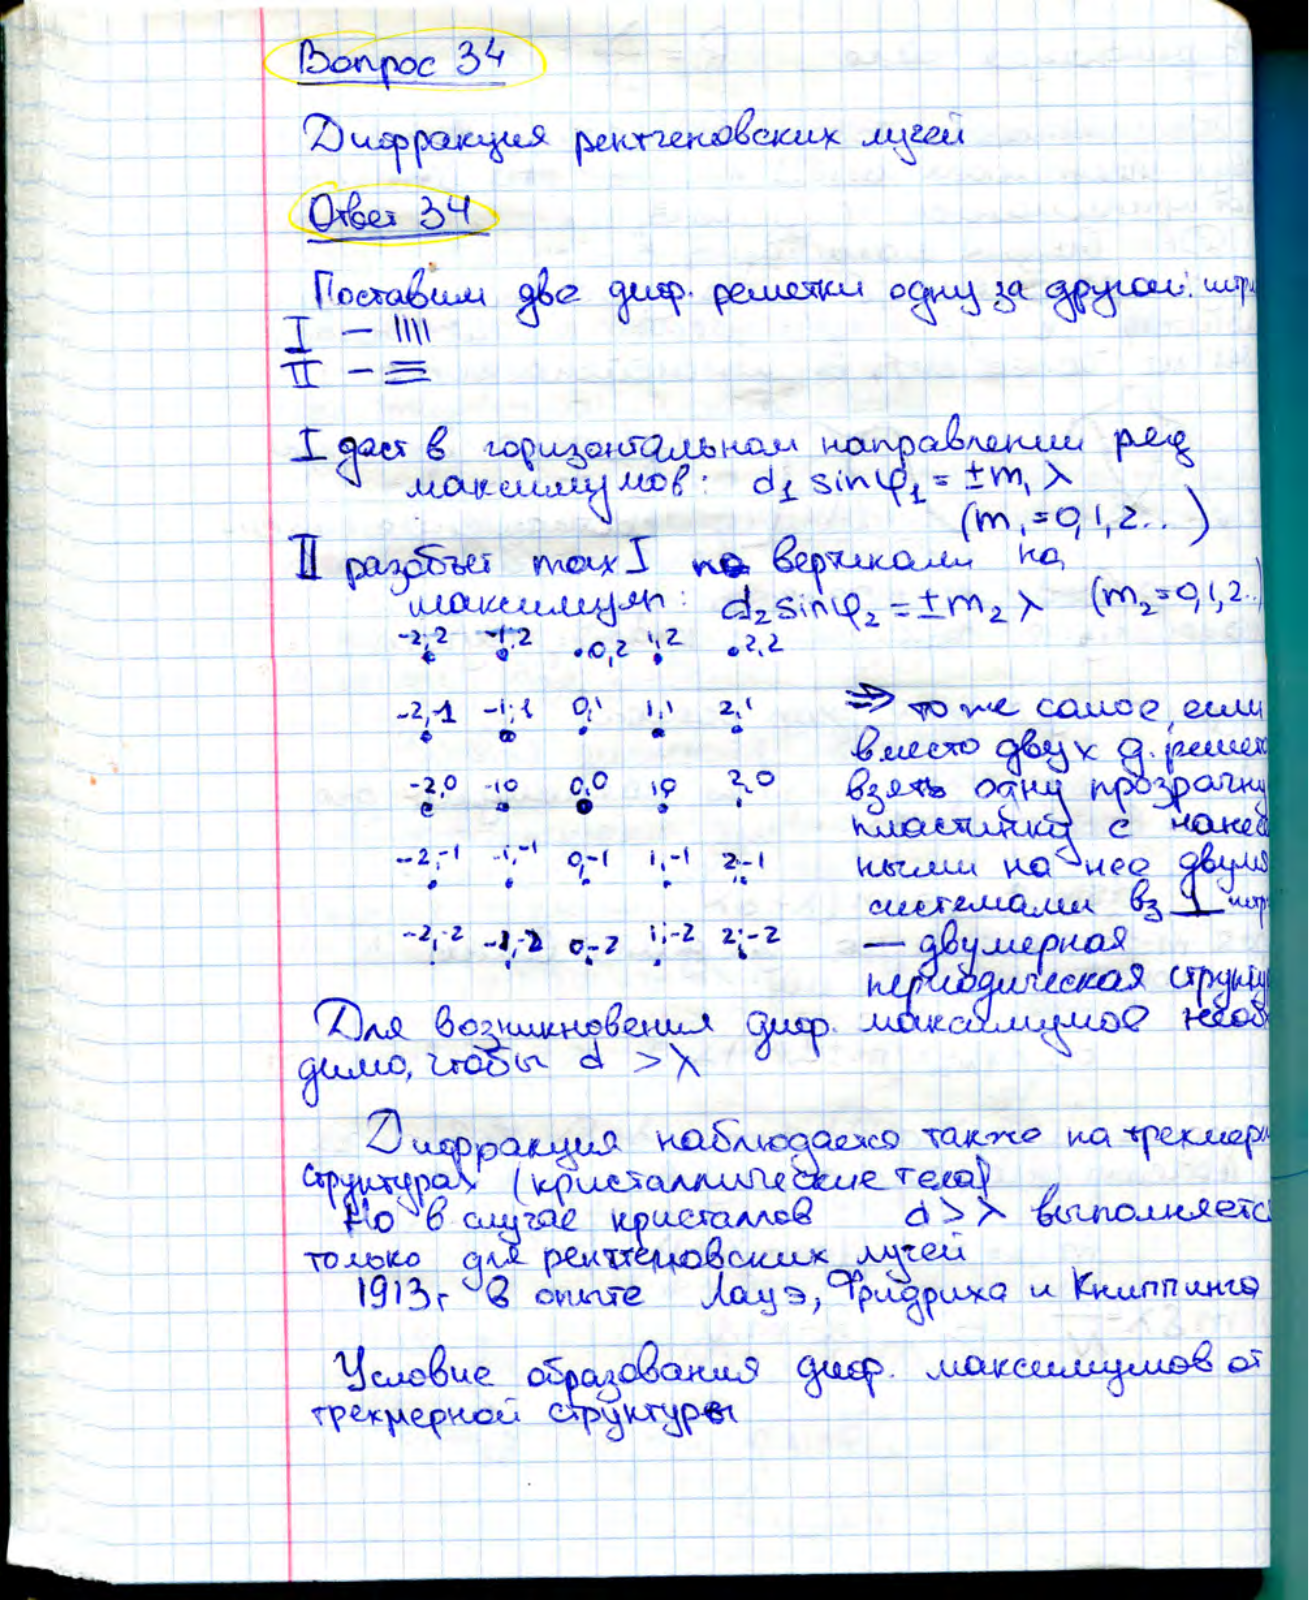 Вопрос 34
Дифракция рентгеновских лучей
Ответ 34
Поставим две диф. решетки одну за другой:
I — ||||
II — ☰
I даст в горизонтальном направлении ряд
максимумов: d₁ sinφ₁ = ±m₁ λ
(m₁=0,1,2..)
II разобьет max I по вертикали на
максимумы: d₂ sinφ₂ = ±m₂ λ (m₂=0,1,2..)
-2,2 -1,2 0,2 1,2 2,2
-2,1 -1,1 0,1 1,1 2,1
-2,0 -1,0 0,0 1,0 2,0
-2,-1 -1,-1 0,-1 1,-1 2,-1
-2,-2 -1,-2 0,-2 1,-2 2,-2
⇒ то же самое, если
вместо двух д. решет
взять одну прозрачну
пластинку с нанес
ными на нее двумя
системами вз ⊥
— двумерная
периодическая структу
Для возникновения диф. максимумов необх
димо, чтобы d > λ
Дифракция наблюдается также на трехмерн
структурах (кристаллические тела)
Но в случае кристаллов d > λ выполняетс
только для рентгеновских лучей
1913г в опыте Лауэ, Фридриха и Книппинга
Условие образования диф. максимумов от
трехмерной структуры